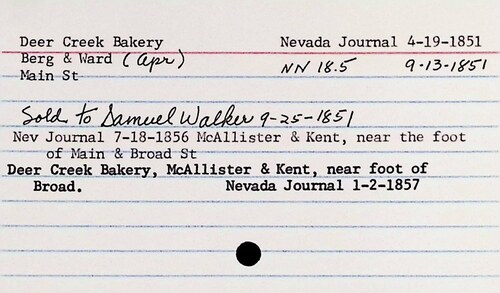 Deer Creek Bakery Nevada Journal 4-19-1851
Berg & Ward (Apr) NN 18.5 9-13-1851
Main St
Sold to Samuel Walker 9-25-1851
Nev Journal 7-18-1856 McAllister & Kent, near the foot
of Main & Broad St
Deer Creek Bakery, McAllister & Kent, near foot of
Broad. Nevada Journal 1-2-1857